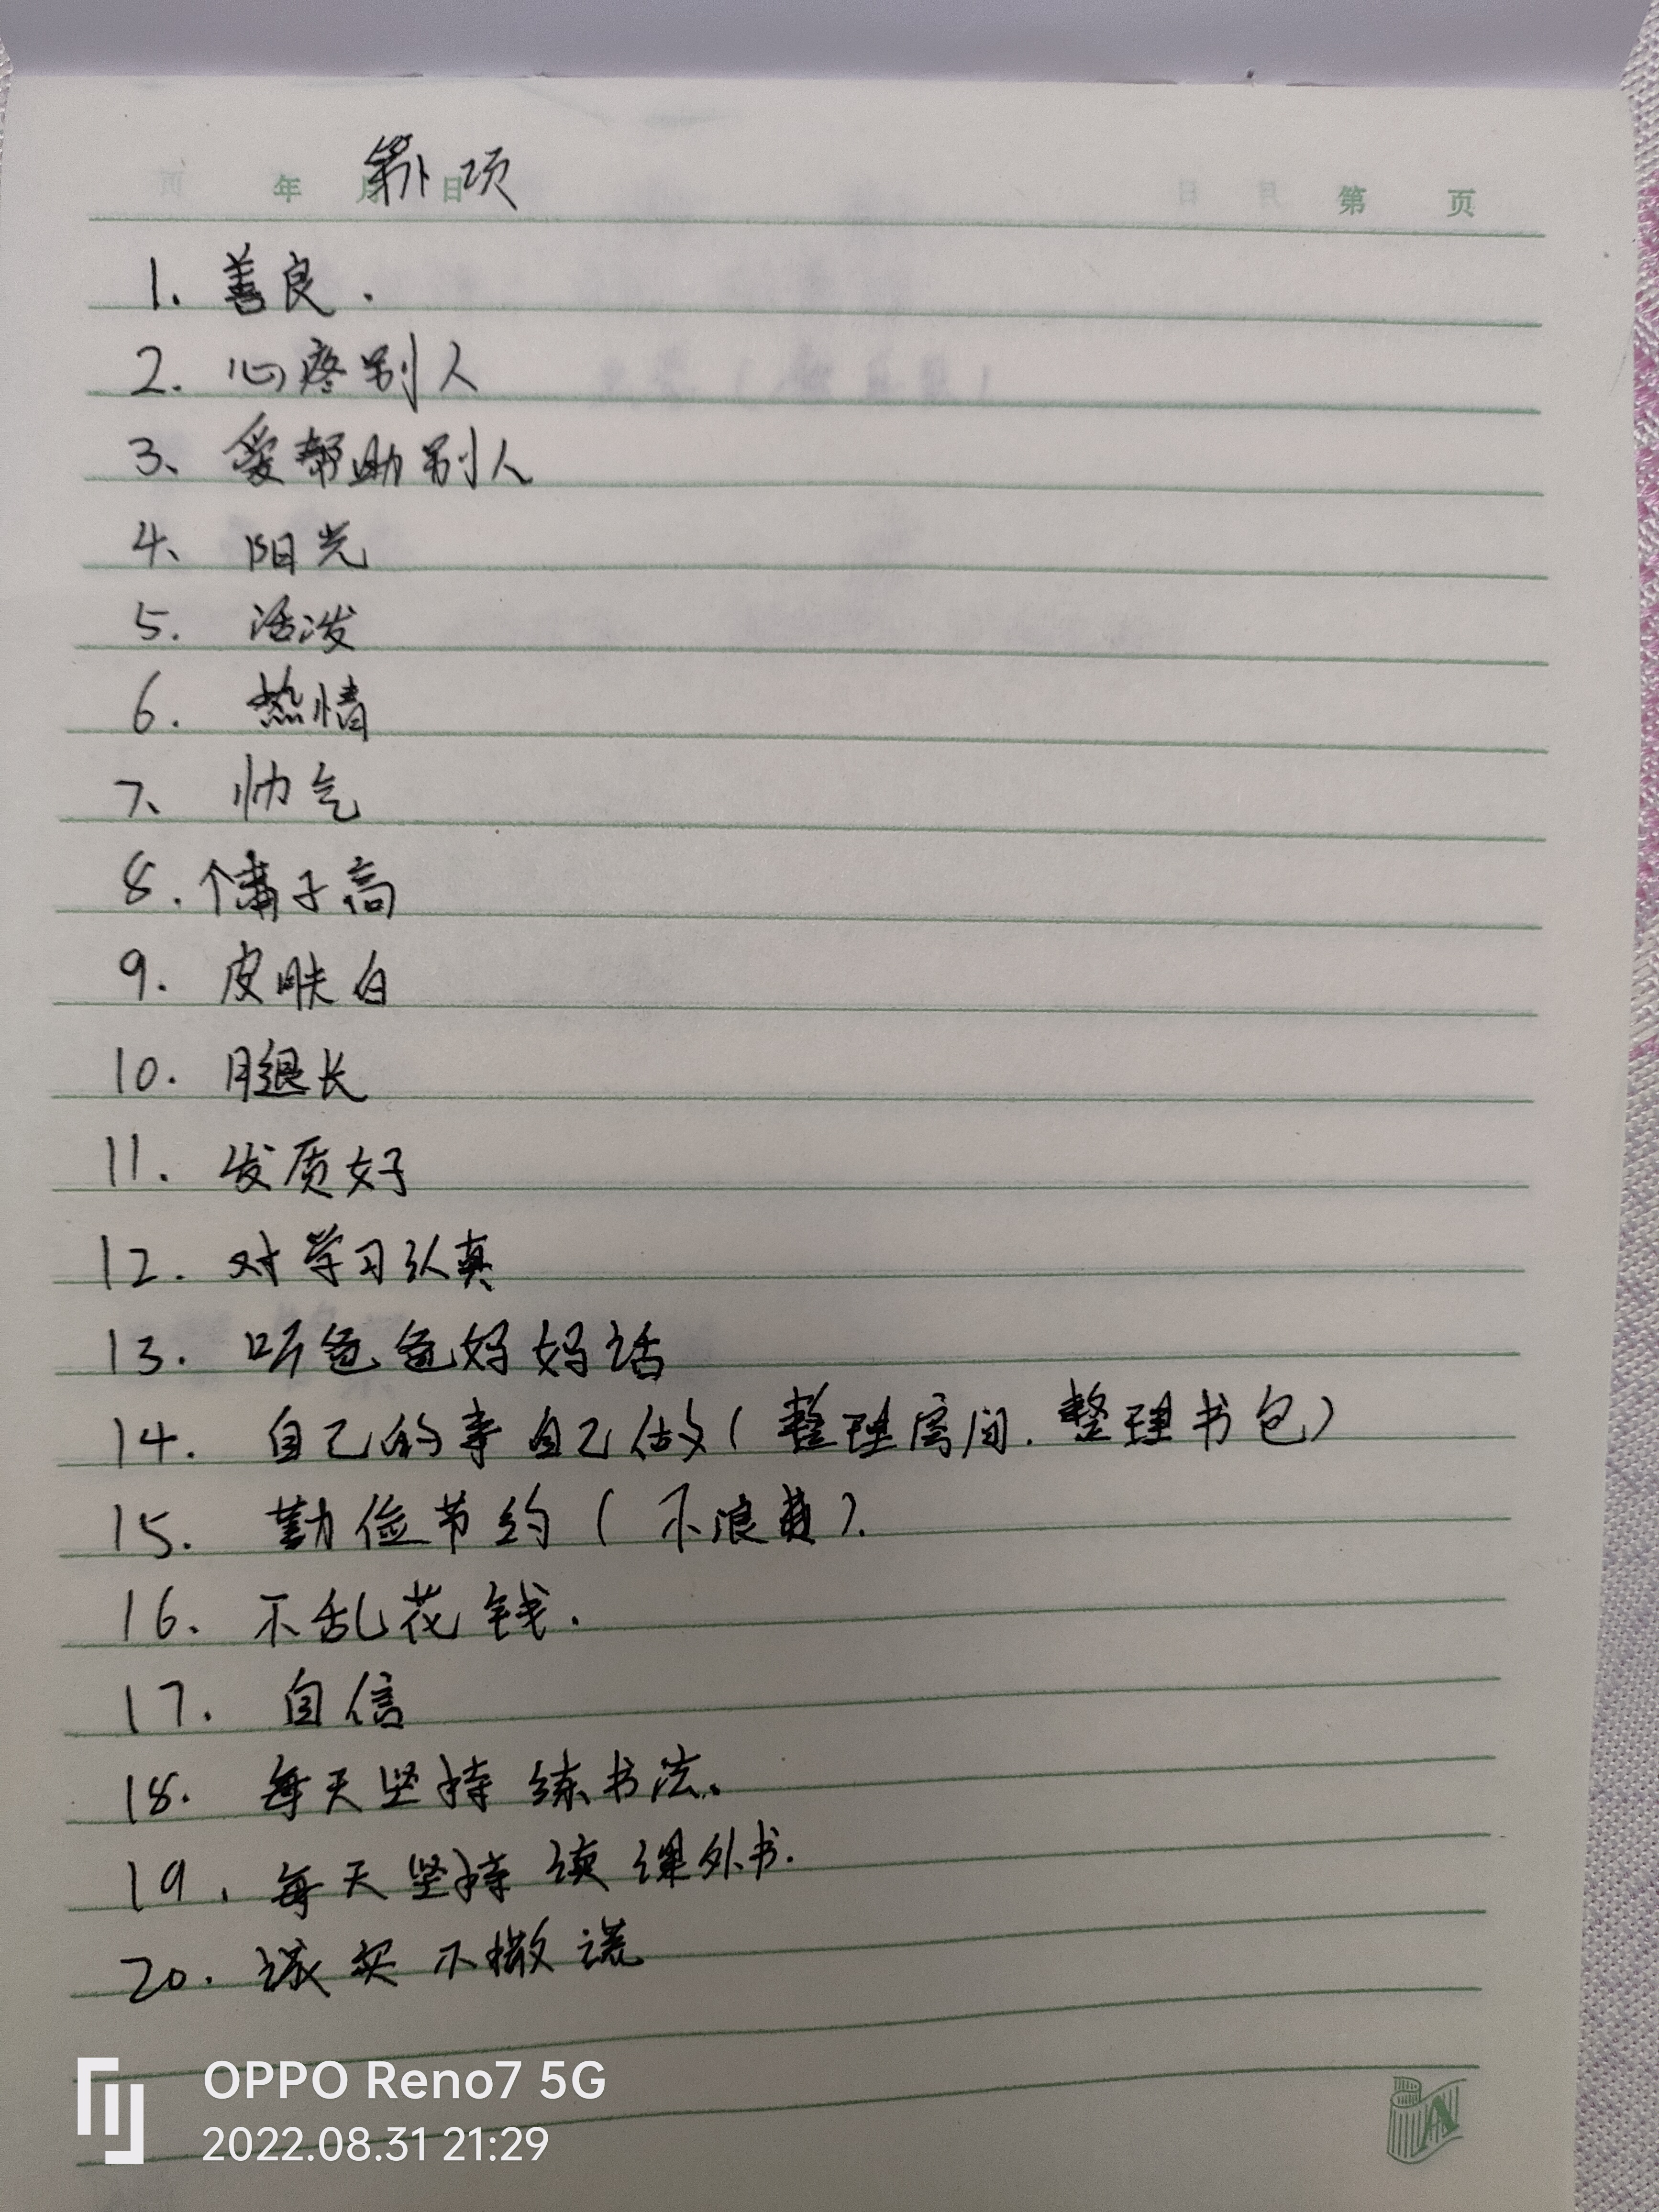 年 月 日 第 页
项
1. 善良.
2. 心疼别人
3、爱帮助别人
4、阳光
5. 活泼
6. 热情
7、帅气
8. 个子高
9. 皮肤白
10. 腿长
11. 发质好
12. 对学习认真
13. 听爸爸妈妈话
14. 自己的事自己做(整理房间.整理书包)
15. 勤俭节约(不浪费).
16. 不乱花钱.
17. 自信
18. 每天坚持练书法.
19. 每天坚持读课外书.
20. 诚实不撒谎
OPPO Reno7 5G
2022.08.31 21:29